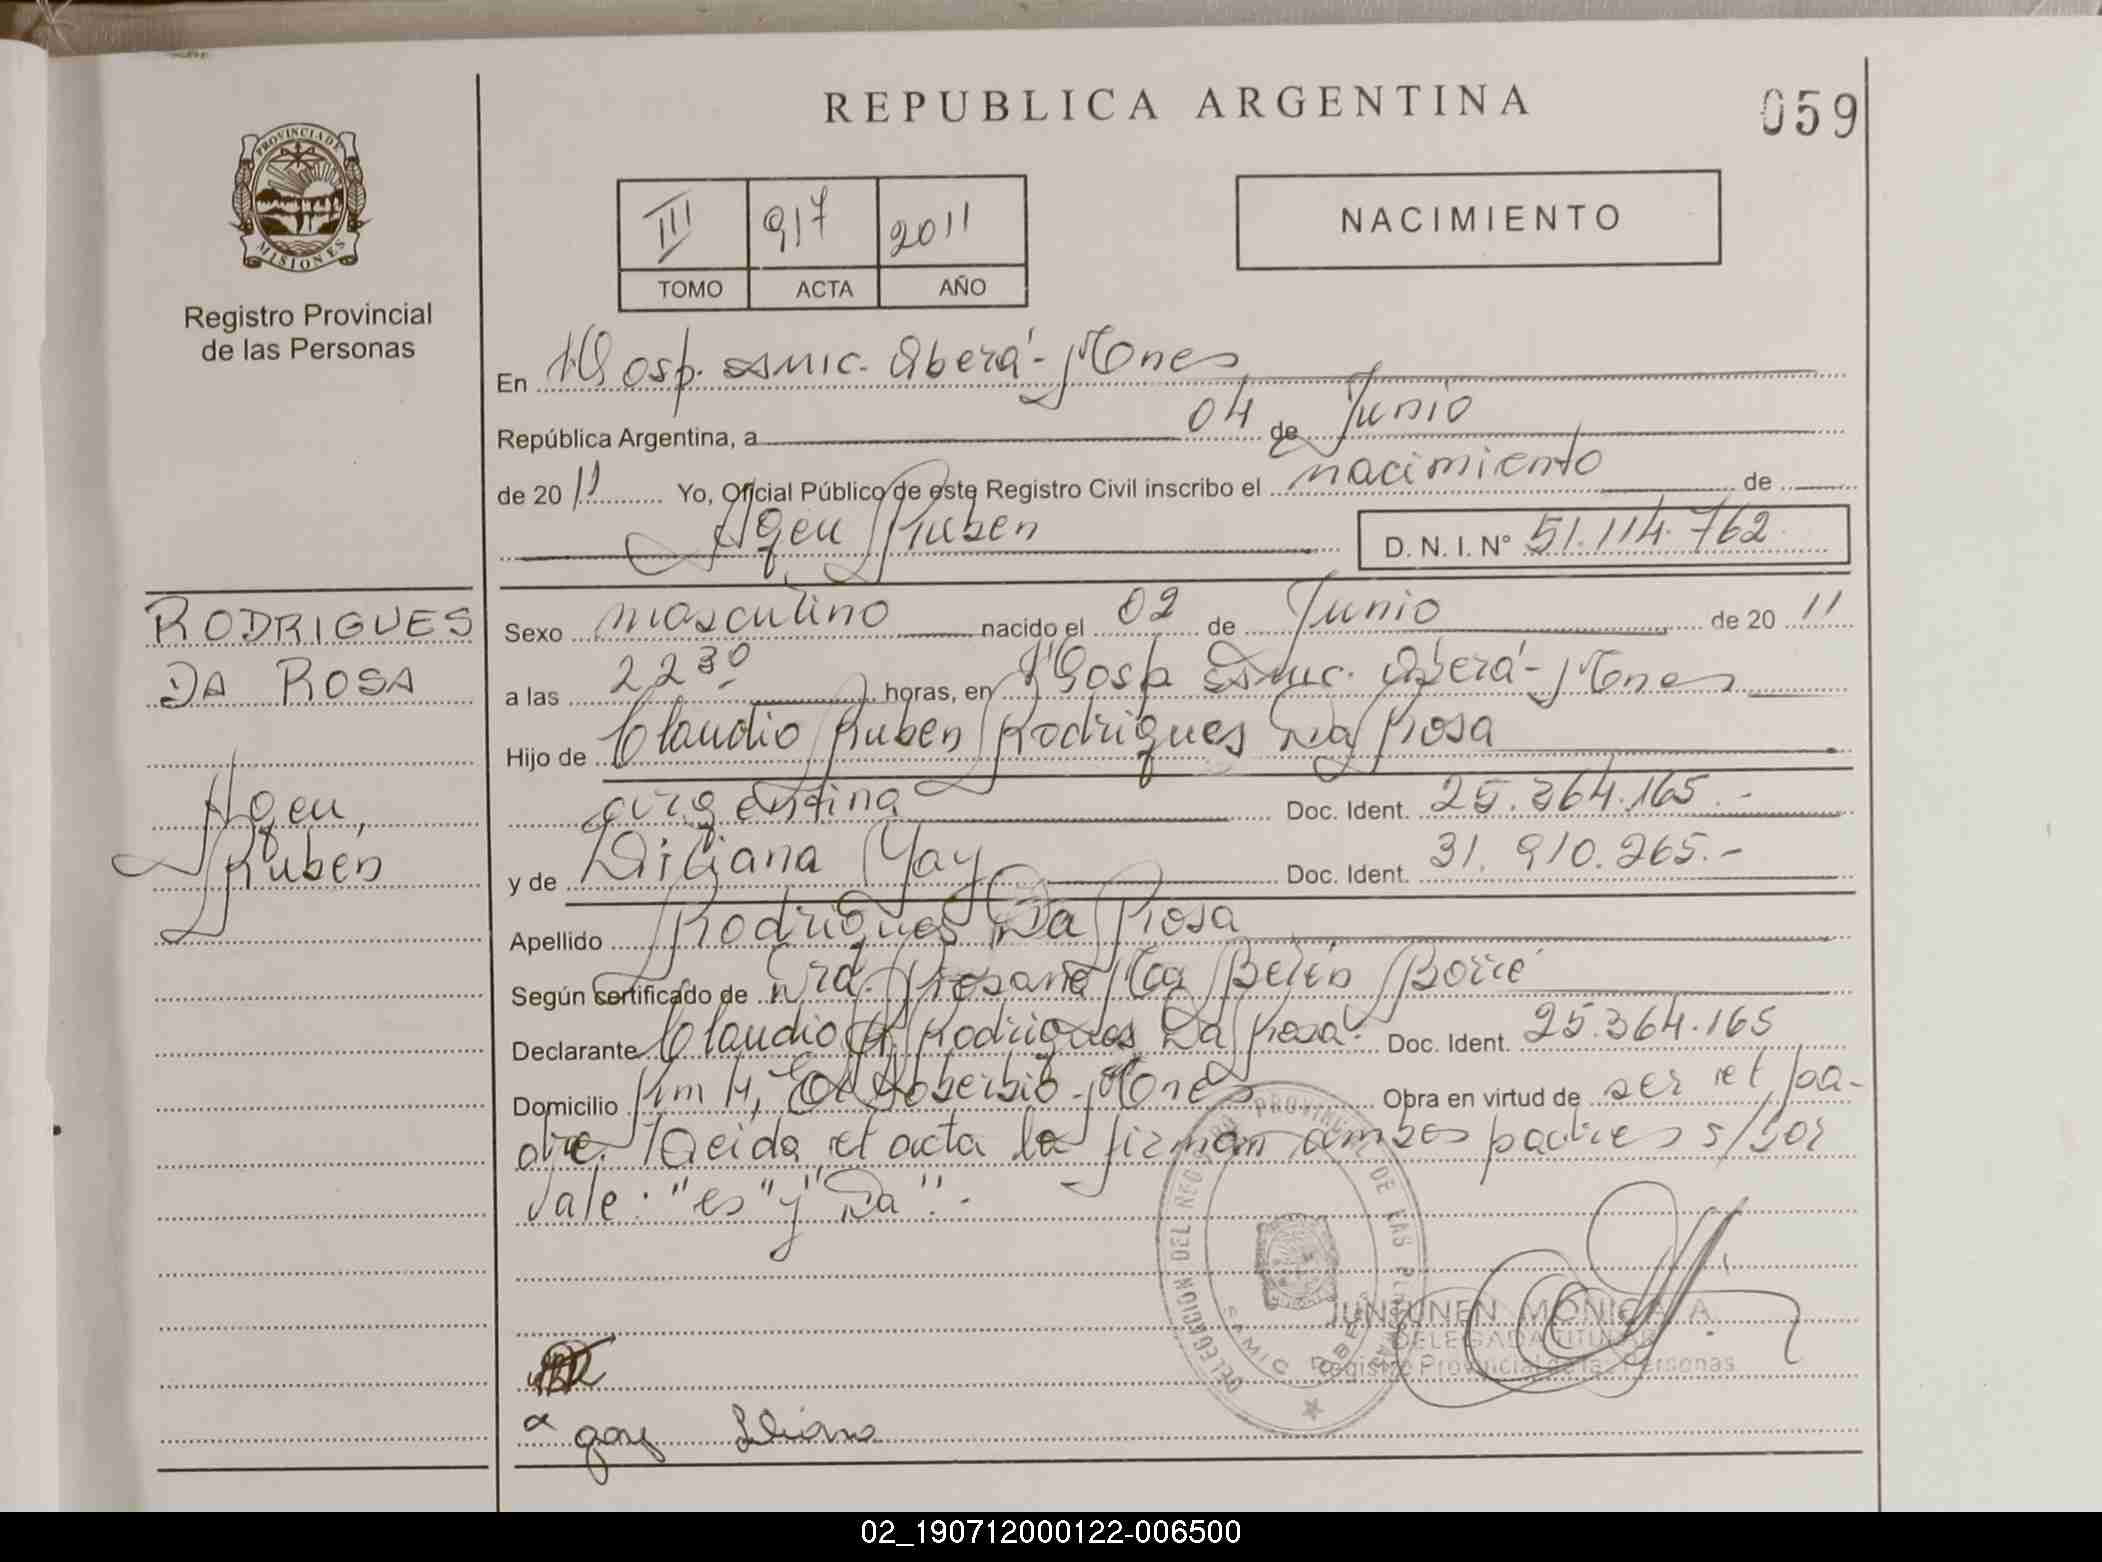 REPUBLICA ARGENTINA
059
PROVINCIA DE
MISIONES
Registro Provincial
de las Personas
III 917 2011
TOMO ACTA AÑO
NACIMIENTO
En Hosp. SAMIC. Oberá - Mnes
República Argentina, a 04 de Junio
de 2011 Yo, Oficial Público de este Registro Civil inscribo el nacimiento de
Ageu Ruben D. N. I. N° 51.114.762
RODRIGUES
DA ROSA
Ageu,
Ruben
Sexo masculino nacido el 02 de Junio de 2011
a las 22 30 horas, en Hosp. SAMIC. Oberá - Mnes
Hijo de Claudio Ruben Rodrigues Da Rosa
argentina Doc. Ident. 25.364.165.-
y de Liliana Yay Doc. Ident. 31.910.265.-
Apellido Rodrigues Da Rosa
Según certificado de Dra. Rosana Belén
Declarante Claudio R. Rodrigues Da Rosa. Doc. Ident. 25.364.165
Domicilio Km 4, El Soberbio - Mnes Obra en virtud de ser el pa-
dre. Leida el acta la firman ambos padres s/bor
Vale: "es" y "Da".-
DELEGACION DEL REGISTRO PROVINCIAL DE LAS PERSONAS
SAMIC OBERA
JUNTUNEN MONICA A.
DELEGADA TITULAR
Registro Provincial de las Personas
02_190712000122-006500